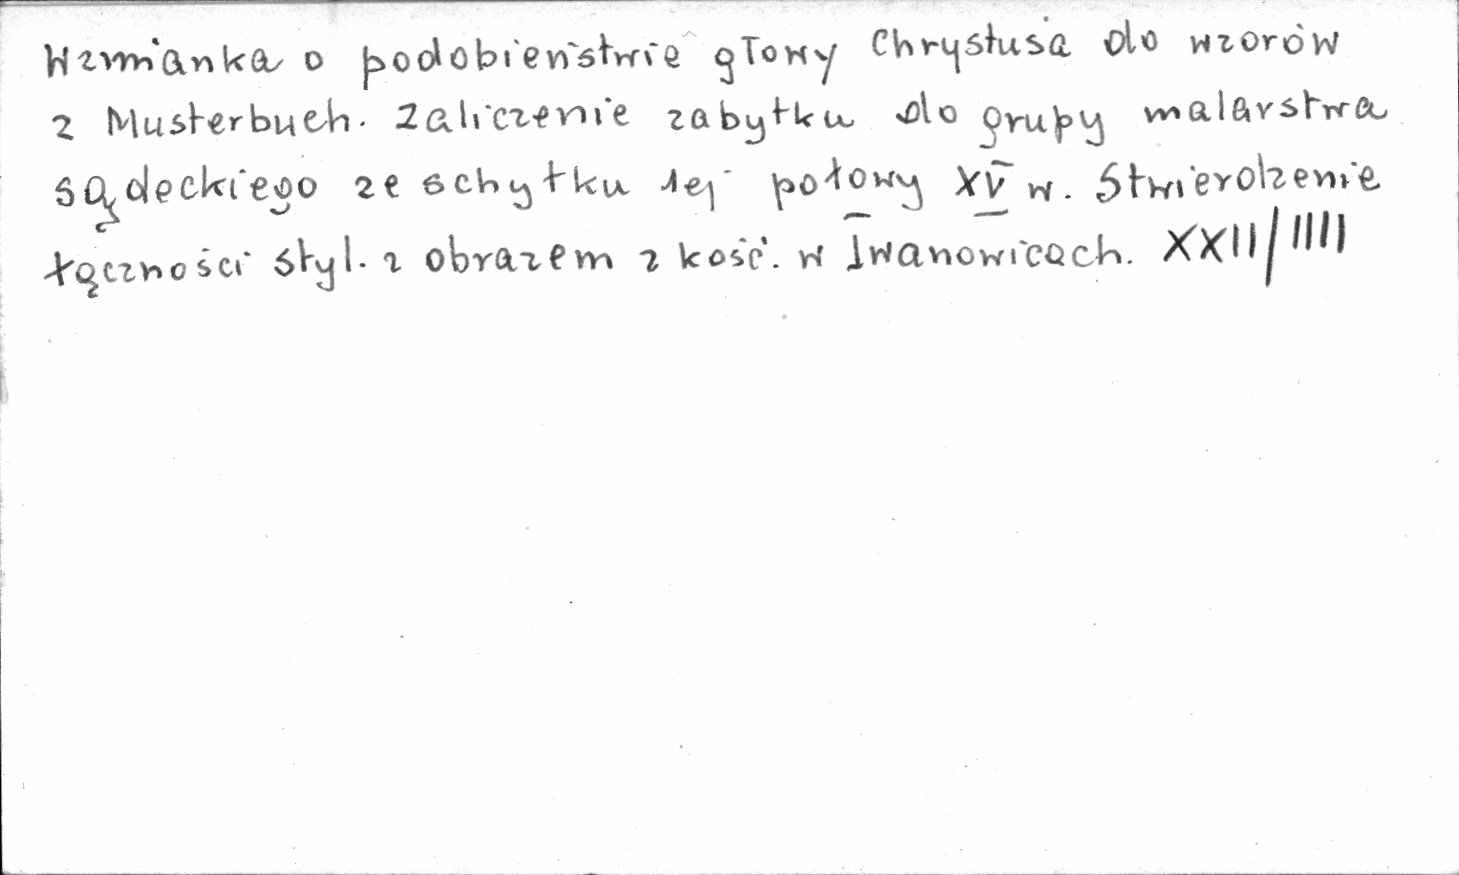 Wzmianka o podobieństwie głowy Chrystusa do wzorów
z Musterbuch. Zaliczenie zabytku do grupy malarstwa
sądeckiego ze schyłku 1ej połowy XV w. Stwierdzenie
łączności styl. z obrazem z kość. w Iwanowicach. XXII/IIII